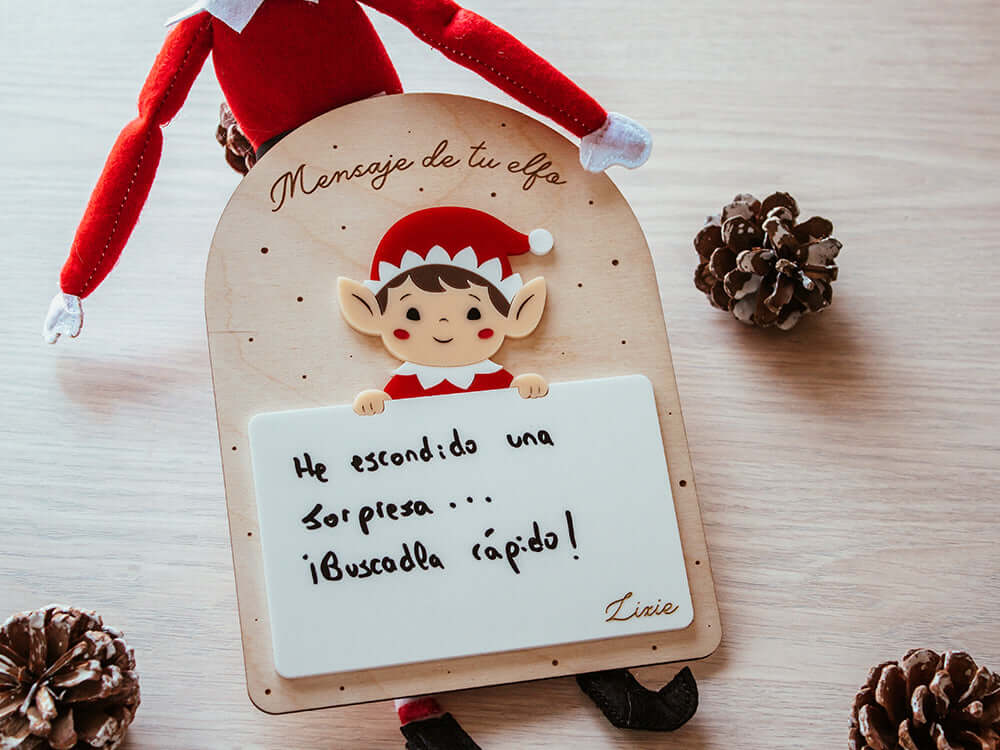 Mensaje de tu elfo
He escondido una
sorpresa...
¡Buscadla rápido!
Lixie